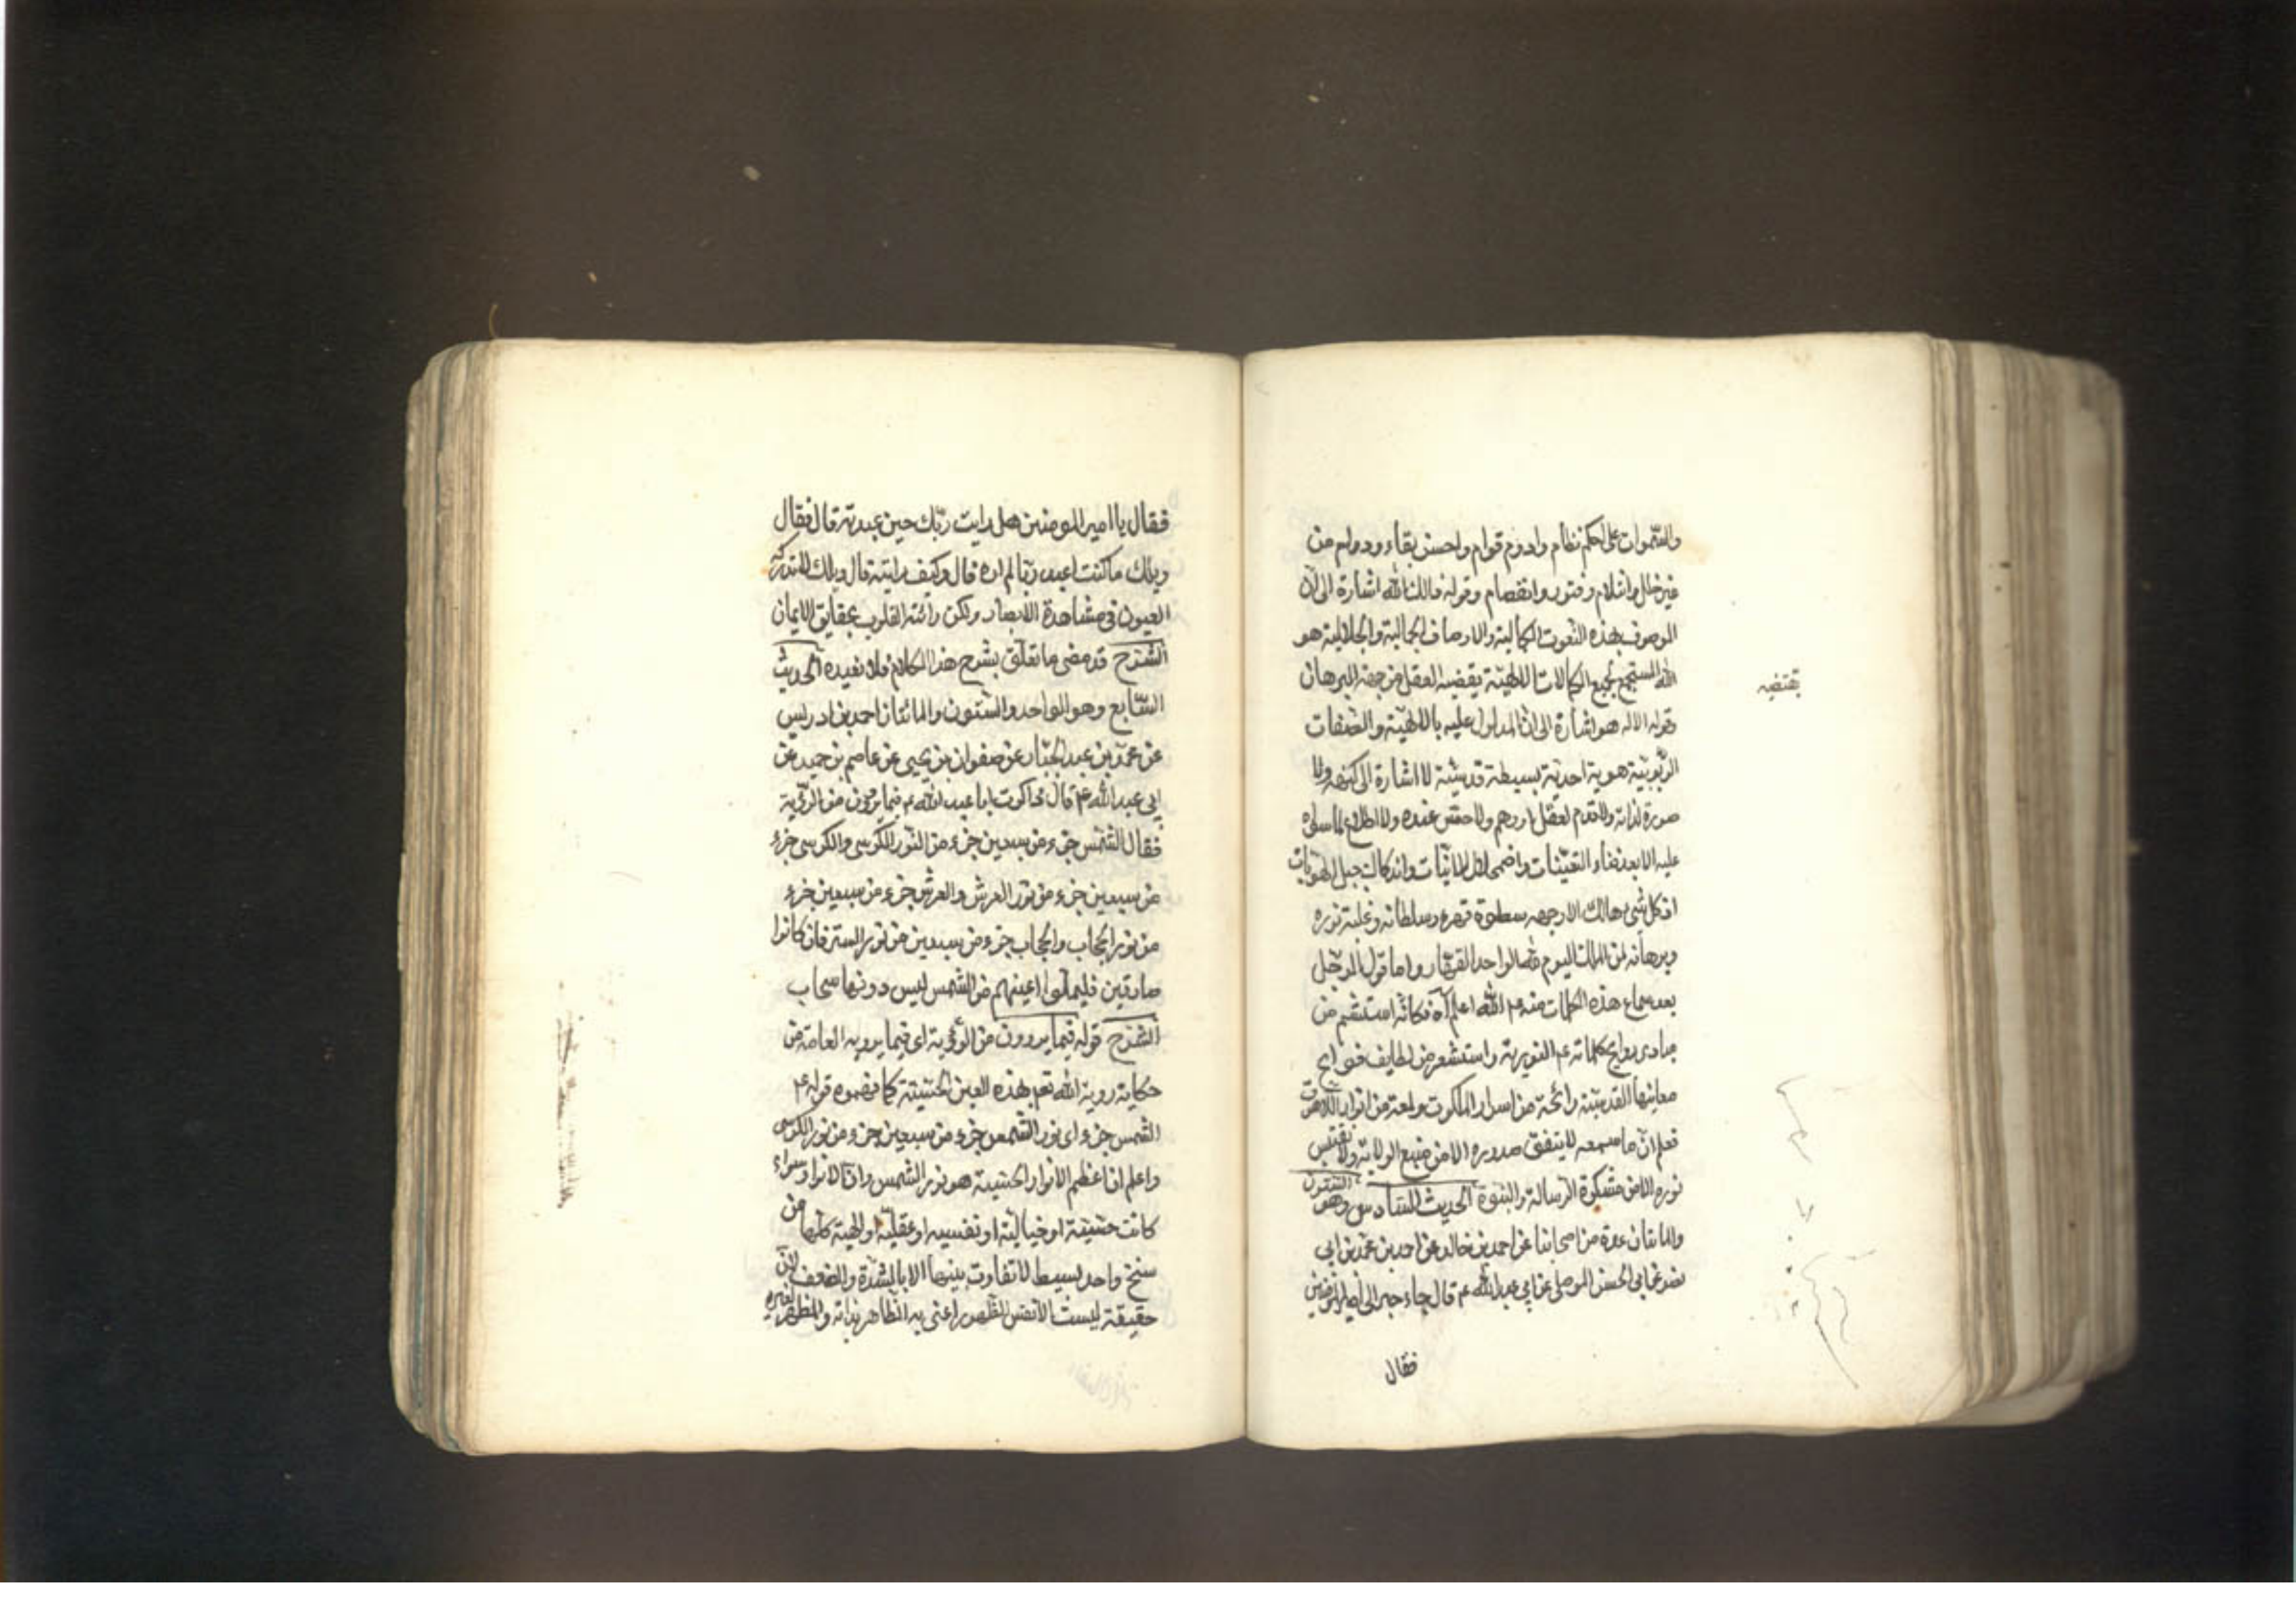 والسموات على احكم نظام وادوم قوام واحسن بقاء ودوام من
غير خلل وانثلام وفتور وانفصام وقوله ذلك الله اشارة الى ان
الموصوف بهذه النعوت الكمالية والاوصاف الجمالية والجلالية هو
الله المستجمع لجميع الكمالات الالهية يقضيه العقل من جهة البرهان
يقتضيه
وقوله لا اله هو اشارة الى ان المدلول عليه بالالهية والصفات
الربوبية هوية احدية بسيطة قدسية لا اشارة الى كنهه ولا
صورة لذاته ولا قدم لعقل او وهم ولا حس عنده ولا اطلاع لما سواه
عليه الا بعد فناء التعينات واضمحلال الانيات واندكاك جبل الهويات
اذ كل شيء هالك الا وجهه سطوة قهره وسلطانه وغلبة نوره
وبرهانه لمن الملك اليوم لله الواحد القهار واما قول الرجل
بعد سماع هذه الكلمات منه ع الله اعلم آه فكانه استشم من
مبادى روايح كلماته ع النورية واستشعر من لطايف فوايح
معانيها القدسية رائحة من اسرار الملكوت ولمعة من انوار اللاهوت
فعلم ان ما سمعه لا يتفق صدوره الا من منبع الولاية ولا يقتبس
نوره الا من مشكوة الرسالة والنبوة الحديث السادس وهو الستون
والمائتان عدة من اصحابنا عن احمد بن خالد عن احمد بن محمد بن ابي
نصر عن ابي الحسن الموصلي عن ابي عبد الله ع قال جاء حبر الى امير المؤمنين
فقال
فقال يا امير المومنين هل رايت ربك حين عبدته قال فقال
ويلك ما كنت اعبد ربا لم اره قال وكيف رايته قال ويلك لا تدركه
العيون في مشاهدة الابصار ولكن رأته القلوب بحقايق الايمان
الشرح قد مضى ما تعلق بشرح هذا الكلام فلا نعيده الحديث
السابع وهو الواحد والستون والمائتان احمد بن ادريس
عن محمد بن عبد الجبار عن صفوان بن يحيى عن عاصم بن حميد عن
ابي عبد الله ع قال ذاكرت ابا عبد الله ع فيما يروون من الرؤية
فقال الشمس جزء من سبعين جزء من النور الكرسي والكرسي جزء
من سبعين جزء من نور العرش والعرش جزء من سبعين جزء
من نور الحجاب والحجاب جزء من سبعين من نور الستر فان كانوا
صادقين فليملؤا اعينهم من الشمس ليس دونها سحاب
الشرح قوله فيما يروون من الرؤية اى فيما يرويه العامة من
حكاية روية الله تعم بهذه العين الحسية كما فهموه قوله ع
الشمس جزء اى نور الشمس جزء من سبعين جزء من نور الكرسى
واعلم ان اعظم الانوار الحسية هو نور الشمس واذ الانوار سواء
كانت حسية او خيالية او نفسية او عقلية او الهية كلها من
سنخ واحد بسيط لا تفاوت بينها الا بالشدة والضعف لان
حقيقة ليست الا نفس الظهور اعنى به الظاهر بذاته والمظهر لغيره